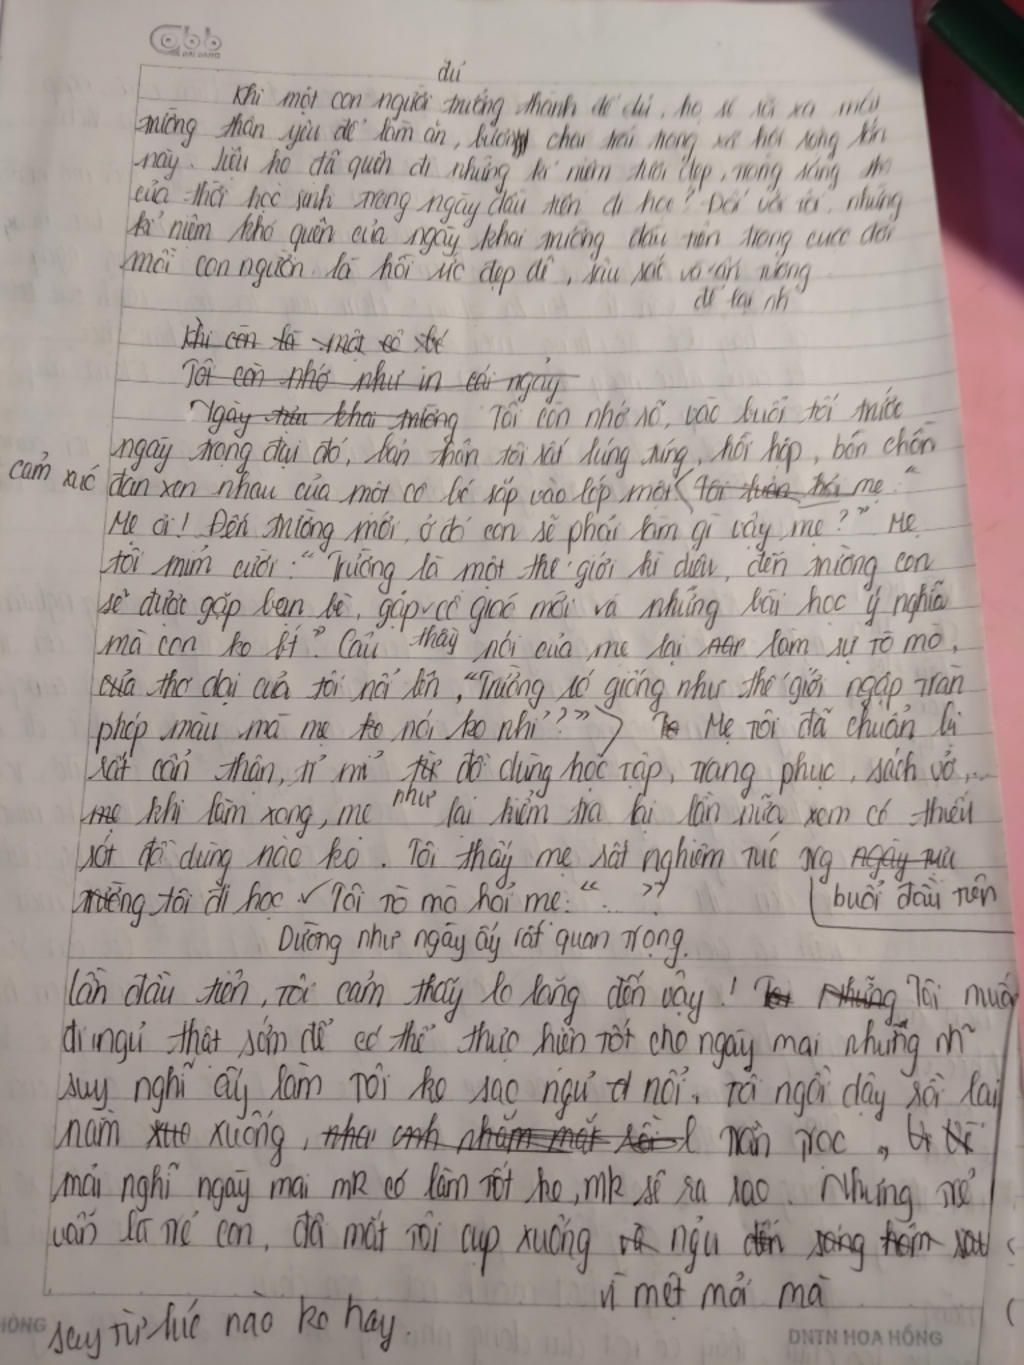 abb
đủ
Khi một con người trưởng thành để đủ, họ sẽ rời xa mái
trường thân yêu để làm ăn, bươn chải trong xã hội rộng lớn
này. Liệu họ đã quên đi những kỉ niệm tươi đẹp, trong sáng
của thời học sinh trong ngày đầu tiên đi học? Đối với tôi, những
kỉ niệm khó quên của ngày khai trường đầu tiên trong cuộc đời
mỗi con người là hồi ức đẹp đẽ, sâu sắc và ấn tượng
để lại nh
Khi còn là một cô bé
Tôi còn nhớ như in cái ngày
Ngày khai trường Tôi còn nhớ rõ, vào buổi tối trước
ngày trọng đại đó, bản thân tôi rất lúng túng, hồi hộp, bồn chồn
cảm xúc đan xen nhau của một cô bé sắp vào lớp một (Tôi hỏi mẹ "
Mẹ ơi! Đến trường mới, ở đó con sẽ phải làm gì vậy mẹ?" Mẹ
tôi mỉm cười: "Trường là một thế giới kì diệu, đến trường con
sẽ được gặp bạn bè, gặp cô giáo mới và những bài học ý nghĩa
mà con ko bt". Câu nói của mẹ lại làm sự tò mò,
thầy
của thơ dại của tôi nổi lên, "Trường có giống như thế giới ngập tràn
phép màu mà mẹ ko nói ko nhỉ??") Mẹ tôi đã chuẩn bị
rất cẩn thận, tỉ mỉ từ đồ dùng học tập, trang phục, sách vở,...
mẹ khi làm xong, mẹ như lại kiểm tra lại lần nữa xem có thiếu
sót đồ dùng nào ko. Tôi thấy mẹ rất nghiêm túc trg ngày
trường tôi đi học ✓ Tôi tò mò hỏi mẹ: "..." buổi đầu tiên
Dường như ngày ấy rất quan trọng.
Lần đầu tiên, tôi cảm thấy lo lắng đến vậy! Những Tôi muốn
đi ngủ thật sớm để có thể thực hiện tốt cho ngày mai nhưng nh~
suy nghĩ ấy làm tôi ko sao ngủ nổi. Tôi ngồi dậy rồi lại
nằm xuống, nhắm mắt rồi trằn trọc,
mải nghĩ ngày mai mk có làm tốt ko, mk sẽ ra sao. Nhưng trẻ
vẫn là trẻ con, đôi mắt tôi cụp xuống và ngủ đến sáng hôm sau
vì mệt mỏi mà
say từ lúc nào ko hay.
DNTN HOA HỒNG